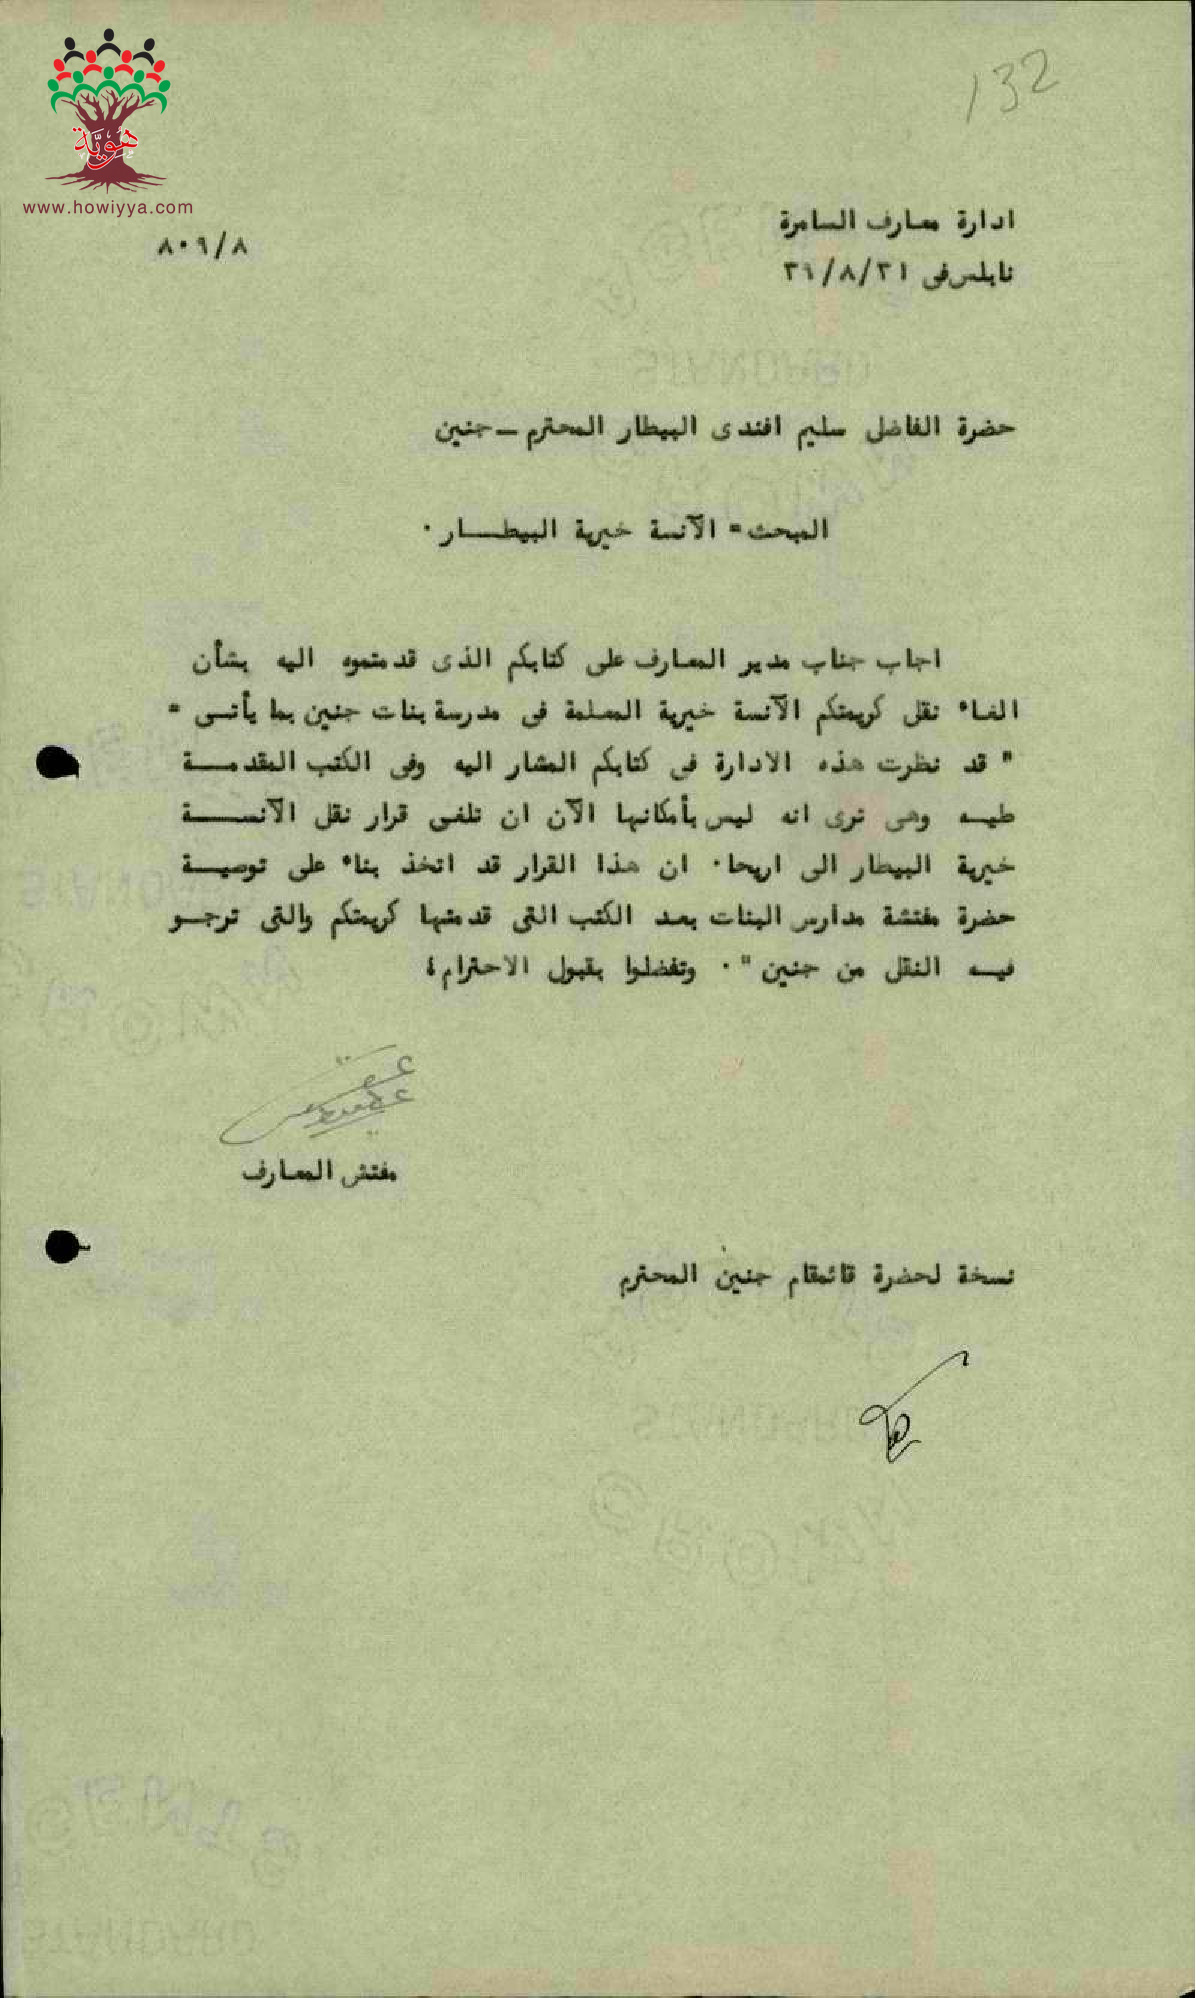 132
هُوِيَّة
www.howiyya.com
ادارة معارف السامرة
٨٠٩/٨
نابلس فى ٣١/٨/٢١
حضرة الفاضل سليم افندى البيطار المحترم — جنين
المبحث = الآنسة خيرية البيطـــار ٠
اجاب جناب مدير المعارف على كتابكم الذى قدمتموه اليه بشأن
الغاء نقل كريمتكم الآنسة خيرية المعلمة فى مدرسة بنات جنين بما يأتـى =
" قد نظرت هذه الادارة فى كتابكم المشار اليه وفى الكتب المقدمــة
طيـه وهى ترى انه ليس بأمكانها الآن ان تلغى قرار نقل الآنســـة
خيرية البيطار الى اريحا ٠ ان هذا القرار قد اتخذ بناء على توصيــة
حضرة مفتشة مدارس البنات بعد الكتب التى قدمتها كريمتكم والتى ترجــو
فيـه النقل من جنين " ٠ وتفضلوا بقبول الاحترام ؛
مفتش المعارف
نسخة لحضرة قائمقام جنين المحترم